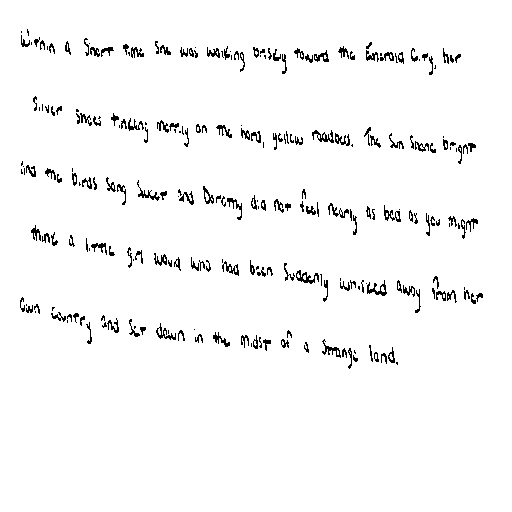 Within a short time she was walking briskly toward the Emerald City, her
silver shoes tinkling merrily on the hard, yellow roadbed. The sun shone bright
and the birds sang sweet and Dorothy did not feel nearly as bad as you might
think a little girl would who had been suddenly whisked away from her
own country and set down in the midst of a strange land.